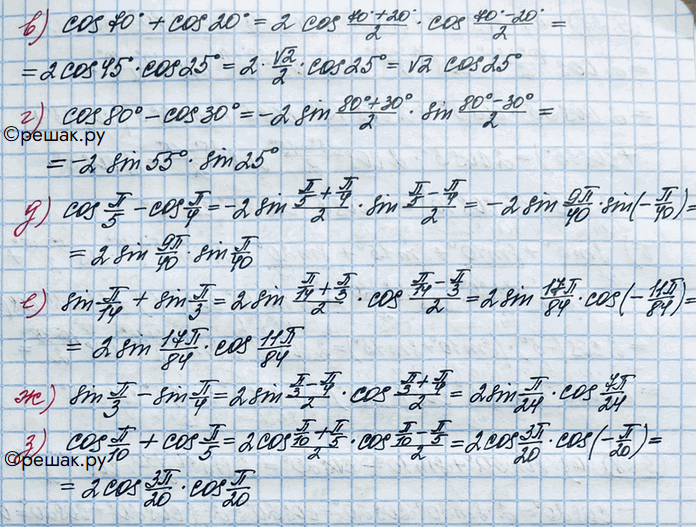 в) cos 70° + cos 20° = 2 cos (70°+20°)/2 · cos (70°-20°)/2 =
= 2 cos 45° · cos 25° = 2 · √2/2 · cos 25° = √2 cos 25°
г) cos 80° - cos 30° = -2 sin (80°+30°)/2 · sin (80°-30°)/2 =
©решак.ру
= -2 sin 55° · sin 25°
д) cos π/5 - cos π/4 = -2 sin (π/5 + π/4)/2 · sin (π/5 - π/4)/2 = -2 sin 9π/40 · sin(-π/40) =
= 2 sin 9π/40 · sin π/40
е) sin π/14 + sin π/3 = 2 sin (π/14 + π/3)/2 · cos (π/14 - π/3)/2 = 2 sin 17π/84 · cos(-11π/84) =
= 2 sin 17π/84 · cos 11π/84
ж) sin π/3 - sin π/4 = 2 sin (π/3 - π/4)/2 · cos (π/3 + π/4)/2 = 2 sin π/24 · cos 7π/24
з) cos π/10 + cos π/5 = 2 cos (π/10 + π/5)/2 · cos (π/10 - π/5)/2 = 2 cos 3π/20 · cos(-π/20) =
©решак.ру
= 2 cos 3π/20 · cos π/20